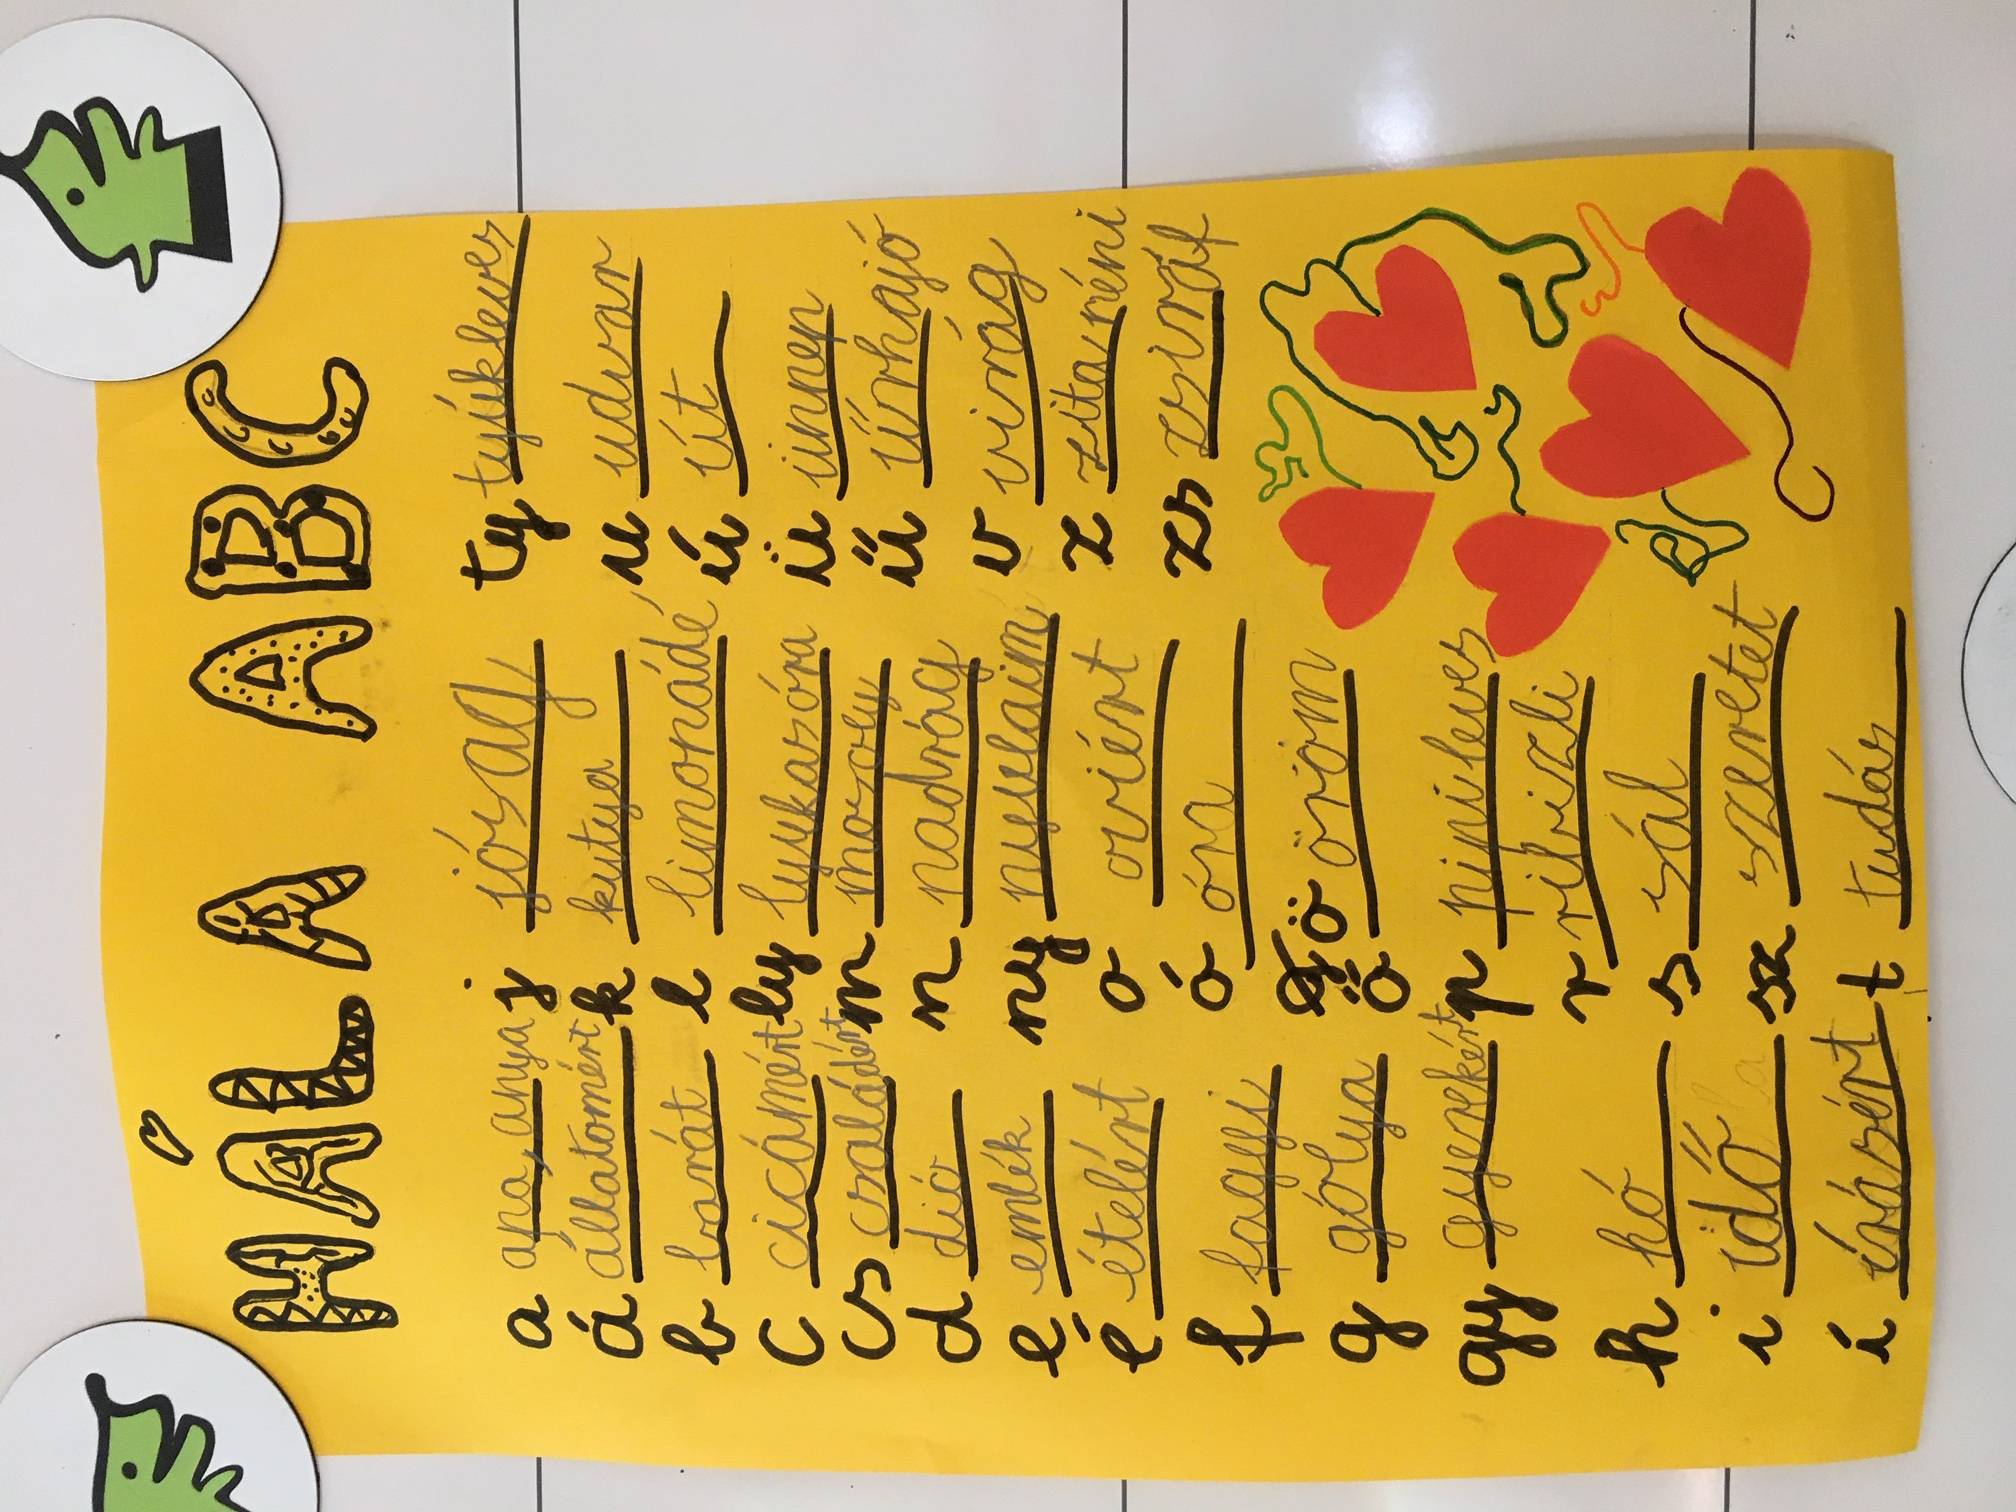 HÁLA A ABC
a apa, anya
á állatomért
b barát
c cicámért
cs családért
d dió
e emlék
é ételért
f fagyi
g gólya
gy gyerekért
h hó
i idő
í írásért
j jósag
k kutya
l limonádé
ly lyukaszóra
m mosoly
n nadrág
ny nyulaim
o oviért
ó óra
ö öröm
ő
p pipileves
r ribizli
s sál
sz szeretet
t tudás
ty tyúkleves
u udvar
ú út
ü ünnep
ű űrhajó
v virág
z zita néni
zs zsiráf